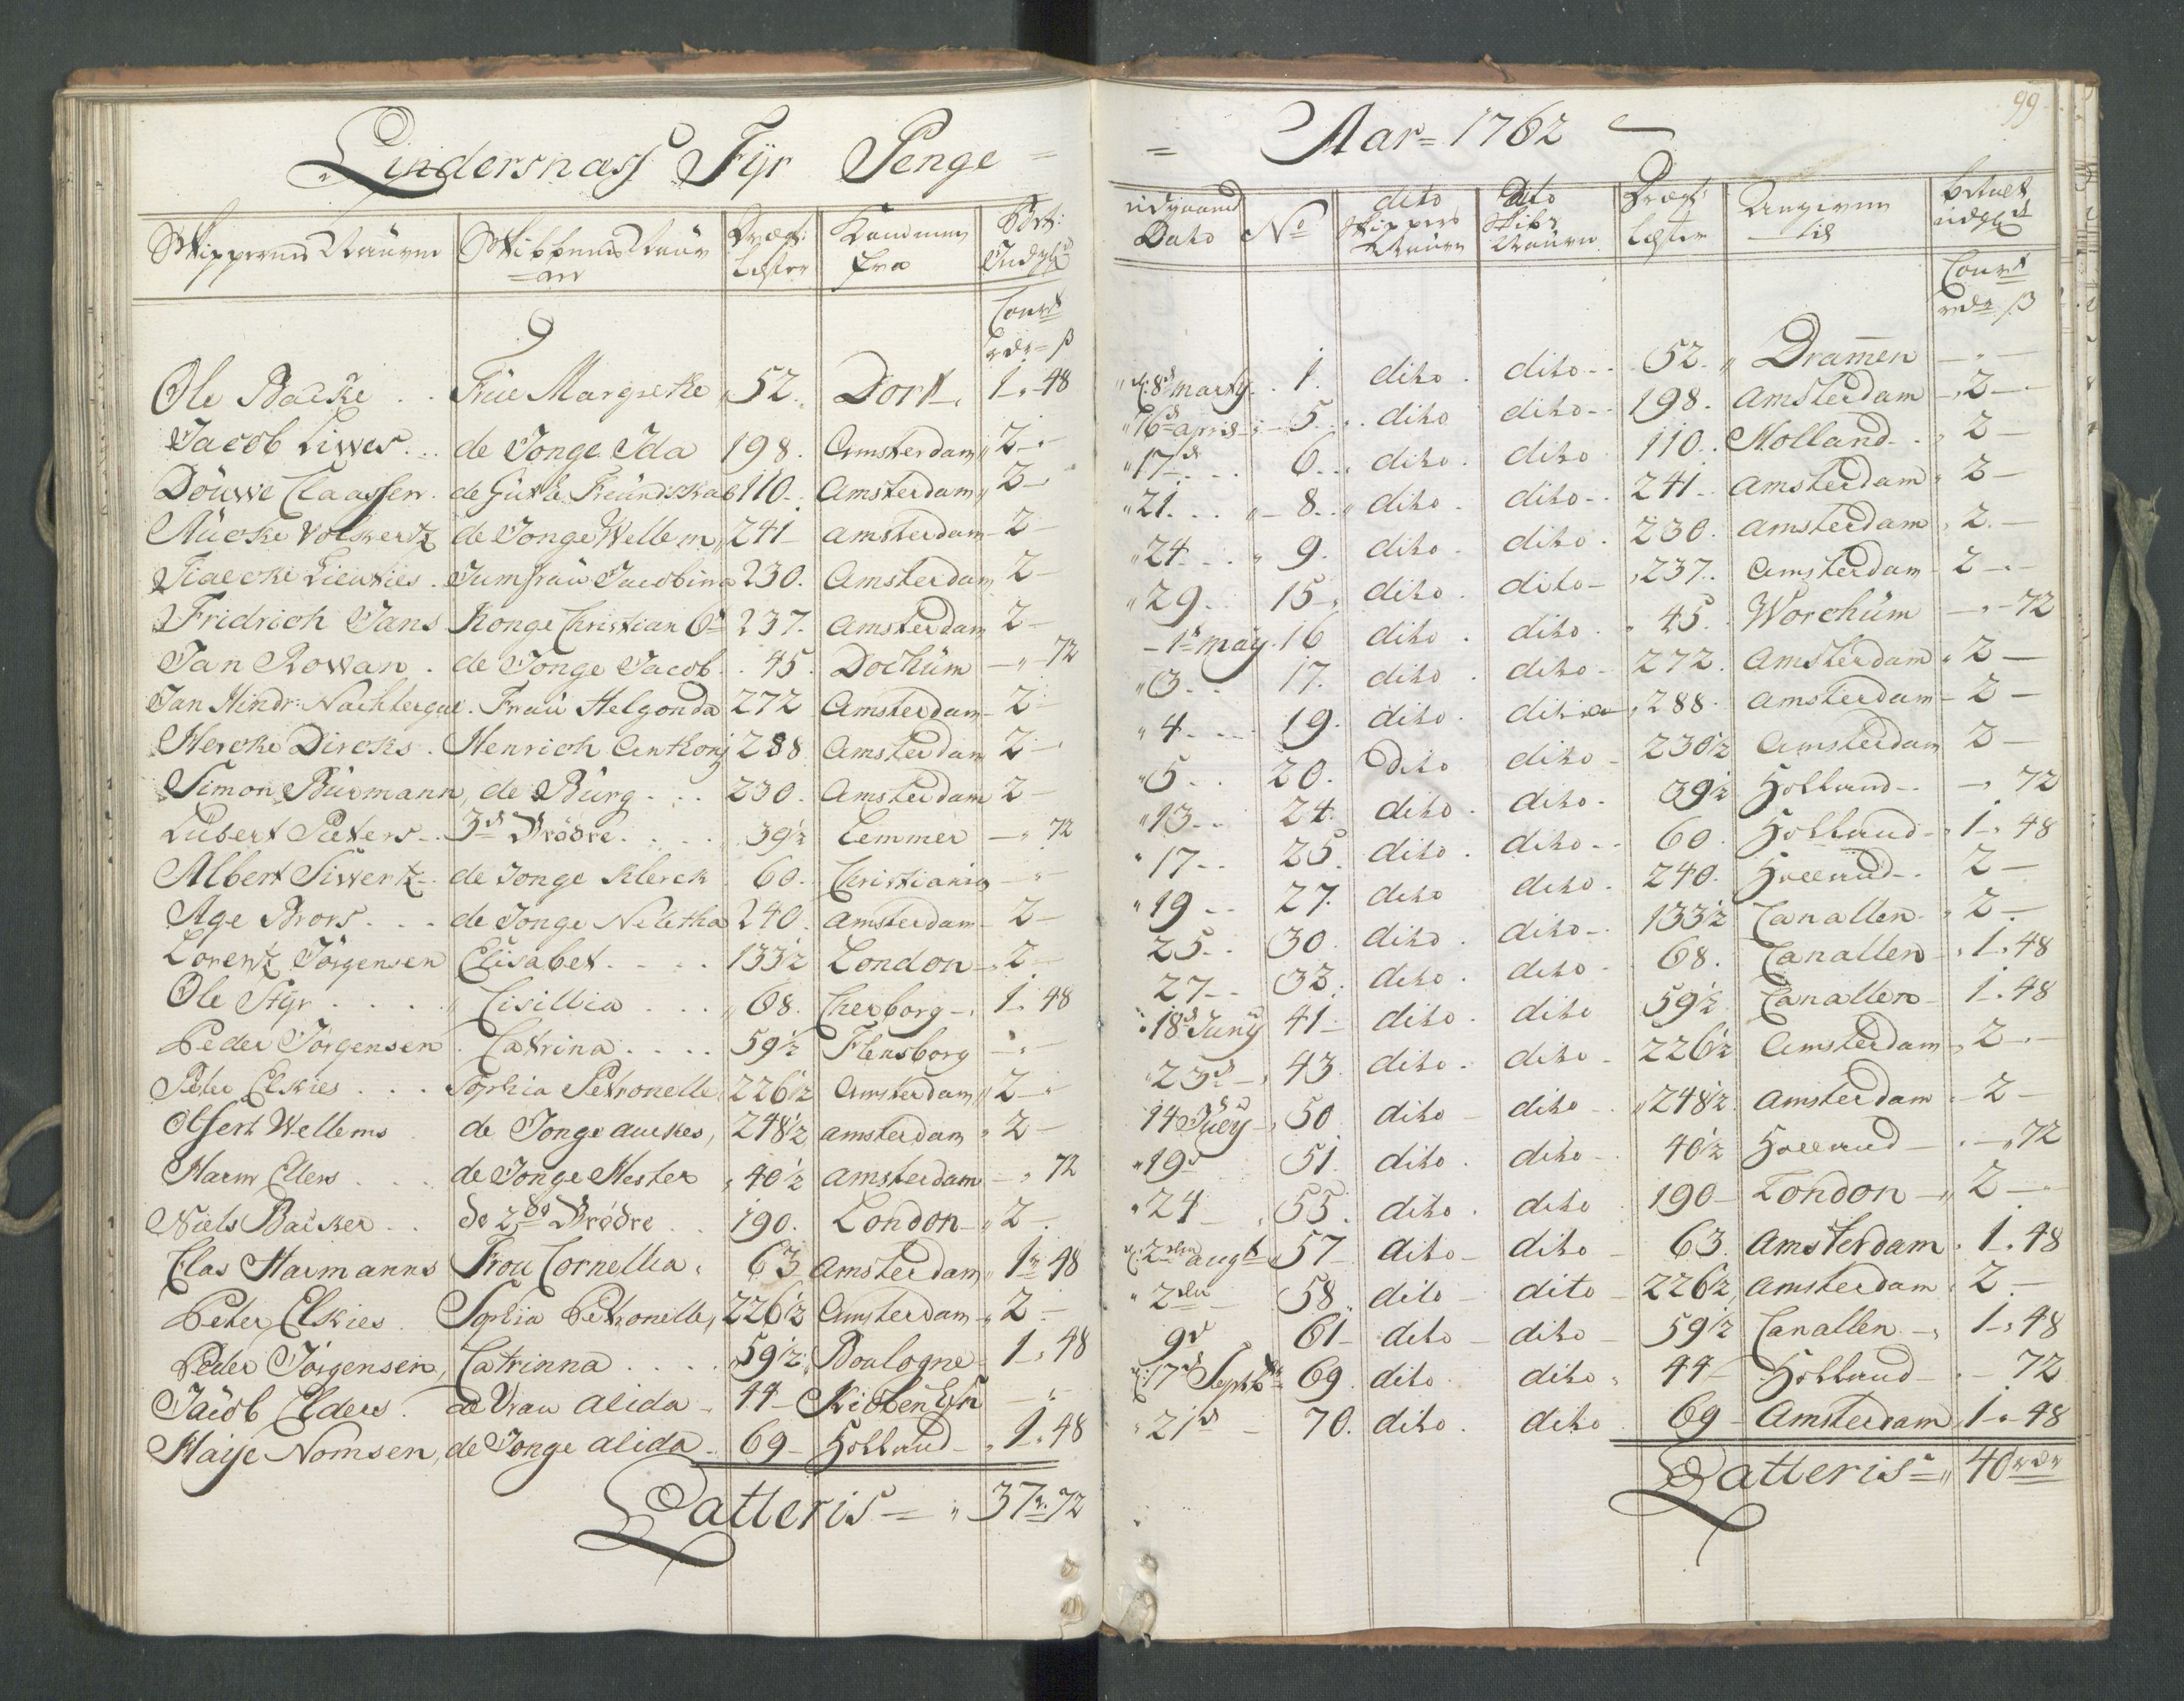 Lindersnæss Fÿr Penge =
Skippernes Naune
Skibbenes Naune
Drægt: Læster
Kommen fra
Court
rdr = ß
Ole Backe . . Frue Margrethe 52. Dort 1 " 48
Jacob Liwes . . . de Jonge Ida 198. Amsterdam " 2 -
Döuwe Claassen . de Güte Freündskab 110 . Amsterdam " 2 -
Aücke Volkertz de Jonge Wellem 241 - Amsterdam - 2 -
Tiaecke Lieuties . Jumfrau Jacobina 230. Amsterdam 2 -
Fridrich Jans Konge Christian 6te 237. Amsterdam 2 -
Jan Rowan . de Jonge Jacob . 45 . Dochüm - " 72
Jan Hindr: Nachtergal . Fraü Helgonda 272 Amsterdam - 2 -
Hercke Dircks . Henrich Anthonj 288 Amsterdam 2 -
Simon Bürmann, de Bürg . . . 230 . Amsterdam 2 -
Lübert Pieters . . 3de Brödre . . . . 39½ Lemmer - " 72
Albert Siwertz . . de Jonge Klerck . 60 . Christiania - "
Age Brors . . . de Jonge Neletha 240 . Amsterdam - 2 -
Lorentz Jörgensen Elisabet . . . . 133½ London - " 2 -
Ole Styr . . . . " Cisillia . . . " 68 . Cherborg - . 1 . 48
Peder Jörgensen . Catrina . . . . 59½ Flensborg - " -
Peter Elskies . . . Sophia Petronelle 226½ Amsterdam " 2 - "
Olfert Wellems de Jonge Auckes, 248½ Amsterdam " 2 -
Harm Elers . . . de Jonge Hester " 40½ Amsterdam - " 72
Niels Backer . . De 2de Brödre . . 190. London - " 2 -
Clas Harmanns Frou Cornellia . 63 Amsterdam " 1 " 48
Peter Elskies . Sophia Petronelle, 226½ Amsterdam - " 2 -
Peder Jörgensen, Catrinna . . . . 59½ . Boulogne - 1 - " 48
Jacob Elders . de Vrau Alida - 44 - Kiöbenh - "
Haije Nomsen, de Jonge Alida . 69 - Holland - . 1 . 48
Latteris = " 37 " 72
= Aar = 1762
99
Udgaaende Dato
No
dito Skippers Naune
dito Skibs Naune
Drægt: Læster
Angiven til
betalt udgl
Court
rdr ß
" d: 8de Marty . . 1. dito . dito . . 52. " Dramen - " -
" 16de April - " - 5 . . . dito dito - . 198. Amsterdam - " 2 -
" 17de . . . 6 . . " dito . dito 110 . . Holland . . " 2 -
" 21. . . . " - 8 . . " dito . dito - . 241 . Amsterdam " 2 -
" 24 . . . " 9. dito . dito . 230. Amsterdam " 2. -
" 29 . . 15 - " dito . dito - " 237 . . Amsterdam - 2 - . -
- 1te May . 16 dito . dito . " 45 . Worchüm - . - 72
" 3 . . 17. dito . dito - 272. Amsterdam " 2 -
" 4 . . . 19. dito . dito " 288 . Amsterdam - 2 -
" 5 . . 20. Dito dito - 230½ Amsterdam 2 -
" 13 . . 24. dito . dito . 39½ Holland - . - " 72
" 17 - - 25. dito . dito - - 60 . Holland - " 1 - " 48
" 19 - . 27. dito dito . 240. Holland - . 2 -
25 . . 30. dito . dito - . 133½ Canallen . " 2 -
27 - . 32. dito . dito . 68 . Canallen - " 1 . 48
" 18de Juny 41 - dito . dito 59½ Canallen - 1 . 48
" 23de - " 43. dito . dito - 226½ Amsterdam - " 2 - . -
14de July - 50 dito - dito - . " 248½ Amsterdam . - 2 -
" 19de 51. dito . dito - . 40½ Holland - . - " 72
" 24 - . 55. dito . dito . 190 - London - " 2 - .
d: 2den Aug: " 57 - dito - dito - 63. Amsterdam . 1 . 48
" 2den - 58 . dito - dito - 226½ Amsterdam " 2 . -
9de 61 - dito - dito - 59½ Canallen - " 1 - " 48
d: 17de Septbr 69. dito . dito " 44 - Holland - . - 72
" 21de - 70. dito . dito . 69 - Amsterdam 1 . - 48
Latteris = " 40 rdr